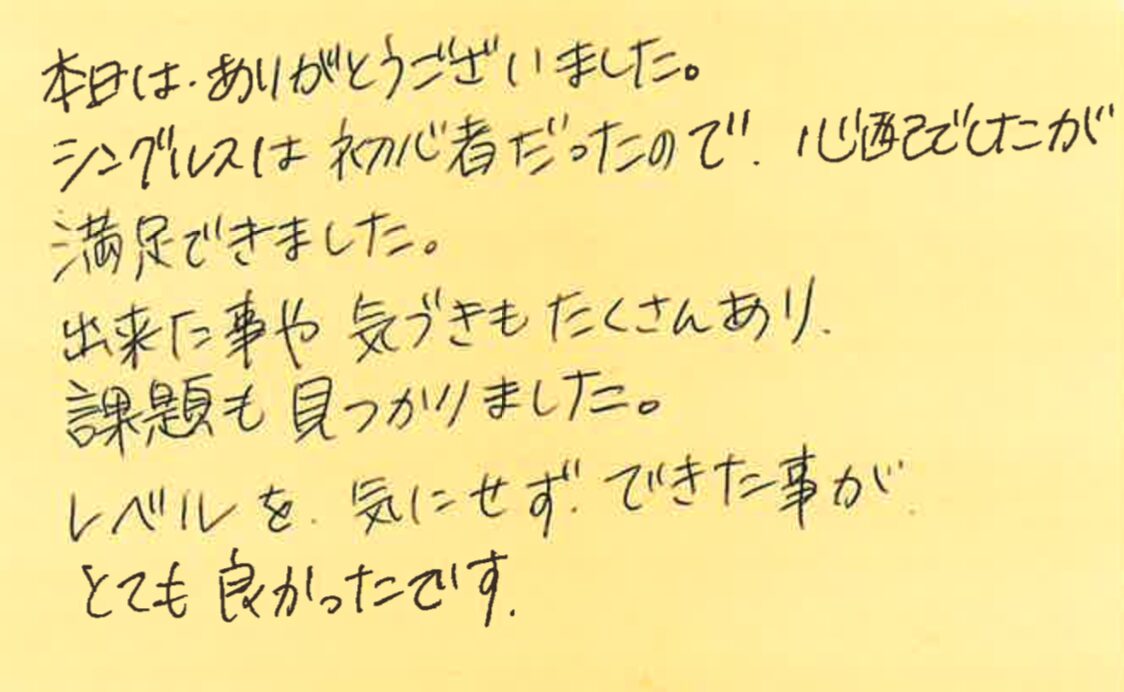 本日は.ありがとうございました。
シングルスは初心者だったので.心配でしたが
満足できました。
出来た事や気づきもたくさんあり.
課題も見つかりました。
レベルを.気にせず.できた事が.
とても良かったです.